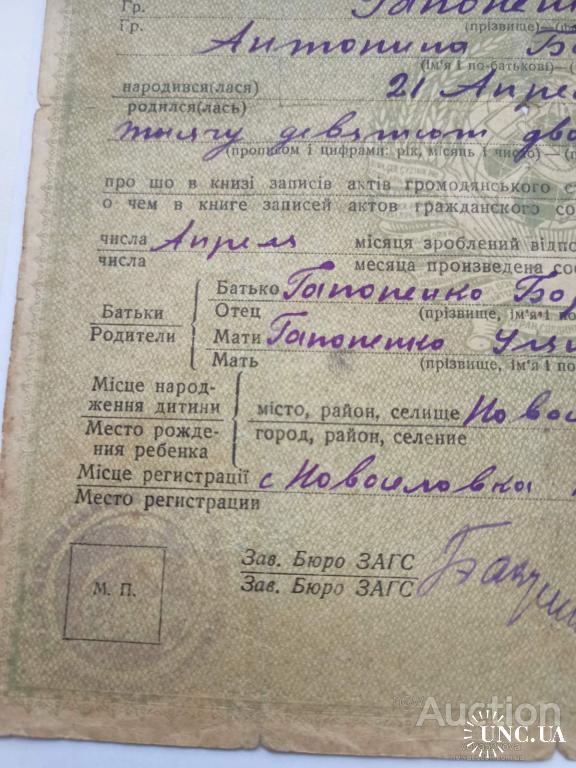 Гр. Гапоненк
Гр. (прізвище)—(ф
Антонина Бо
(ім'я і по-батькові)—(
народився(лася) 21 Апрел
родился(лась)
тысячу девятсот два
(прописом і цифрами: рік, місяць і число)—(п
про що в книзі записів актів громодянського с
о чем в книге записей актов гражданского со
числа Апреля місяця зроблений відпо
числа месяца произведена соо
Батько Гапоненко Бор
Батьки Отец (прізвище, ім'я і по
Родители Мати Гапоненко Ули
Мать (прізвище, ім'я і по
Місце народ-
ження дитини місто, район, селище Новос
Место рожде- город, район, селение
ния ребенка
Місце регистрації с Новоселовка
Место регистрации
Зав. Бюро ЗАГС
М. П. Зав. Бюро ЗАГС
Auction
UNC.UA